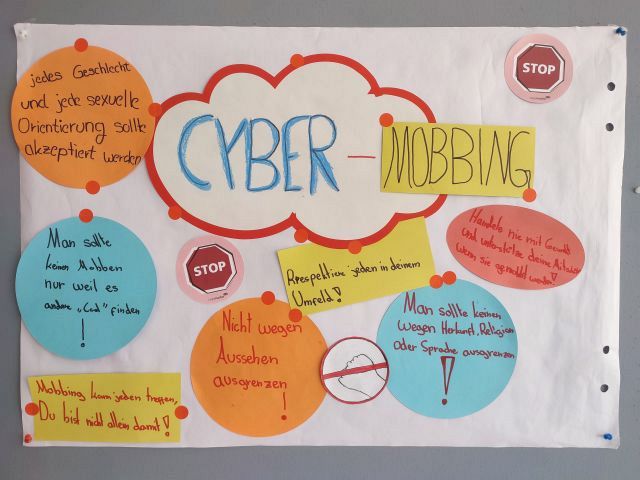 jedes Geschlecht
und jede sexuelle
Orientierung sollte
akzeptiert werden
CYBER - MOBBING
STOP
Man sollte
keinen Mobben
nur weil es
andere „Cool" finden
!
STOP
Respektiere jeden in deinem
Umfeld!
Handele nie mit Gewalt
und unterstütze deine Mitschüler
wenn sie gemobbt werden!
Nicht wegen
Aussehen
ausgrenzen
!
Man sollte keinen
wegen Herkunft, Religion
oder Sprache ausgrenzen
!
Mobbing kann jeden treffen,
Du bist nicht allein damit!